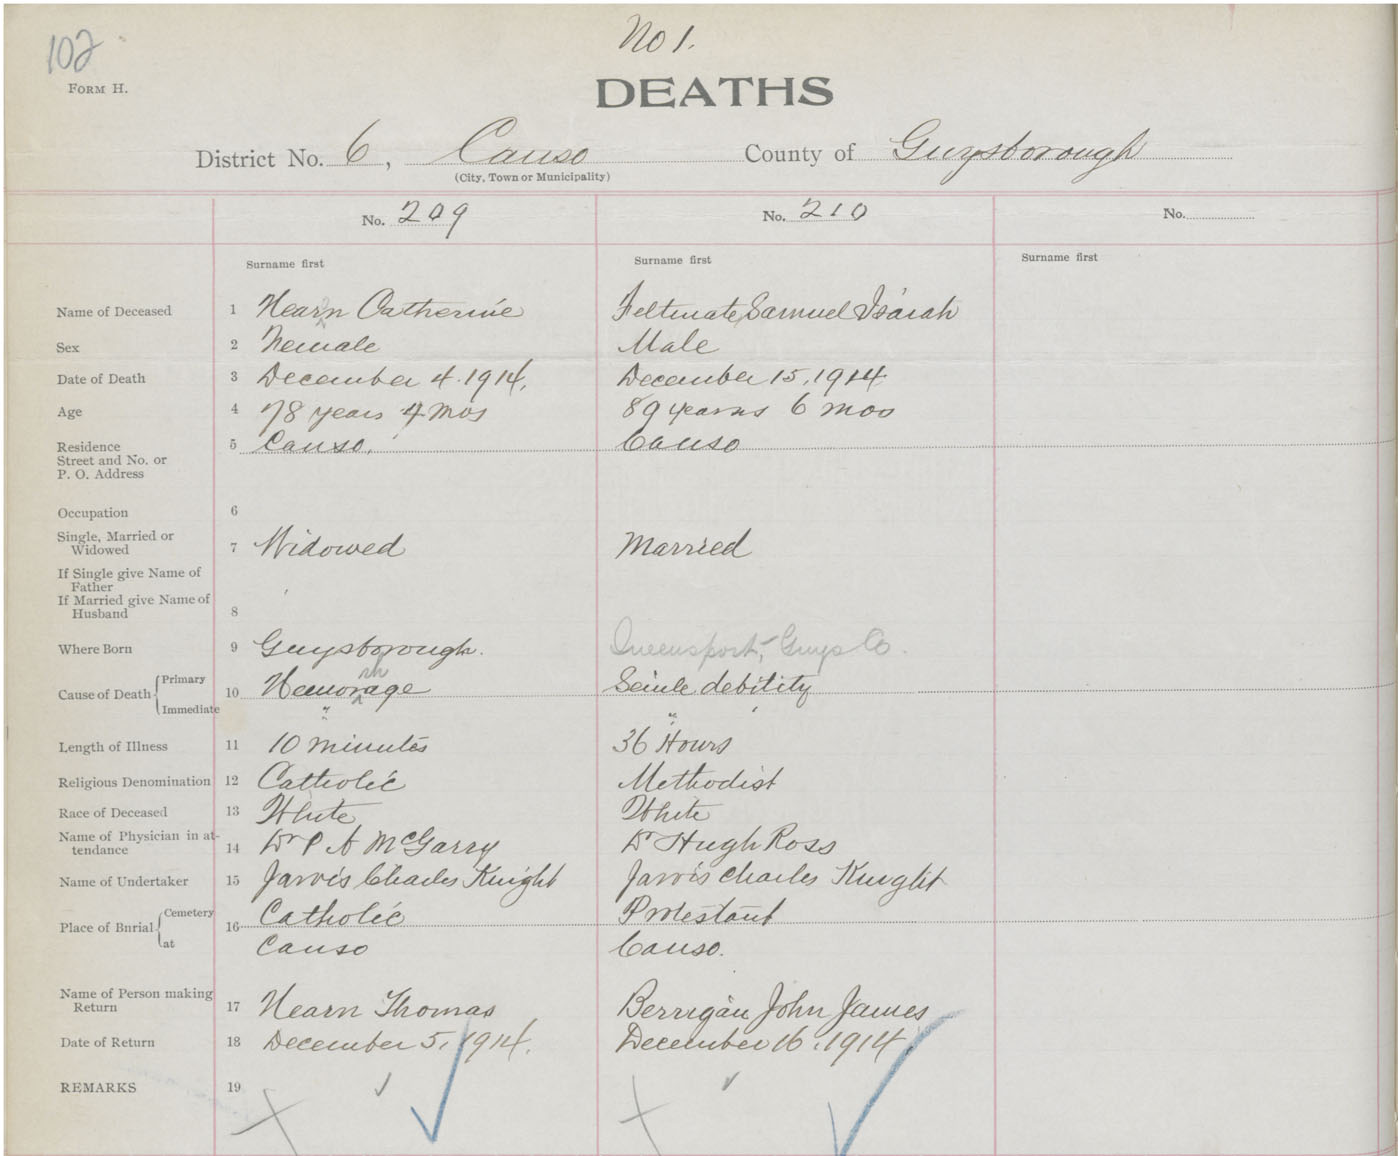 102
No 1.
FORM H.
DEATHS
District No. 6, Canso County of Guysborough
(City, Town or Municipality)
No. 209 No. 210 No.
Surname first Surname first Surname first
Name of Deceased 1 Hearn Catherine Feltmate, Samuel Isaiah
Sex 2 Female Male
Date of Death 3 December 4. 1914. December 15, 1914
Age 4 78 years 4 mos 89 years 6 mos
Residence 5 Canso. Canso
Street and No. or
P. O. Address
Occupation 6
Single, Married or
Widowed 7 Widowed Married
If Single give Name of
Father
If Married give Name of
Husband 8
Where Born 9 Guysborough. Queensport, Guys Co.
Cause of Death Primary 10 Hemorrhage Senile debility
Immediate " "
Length of Illness 11 10 minutes 36 Hours
Religious Denomination 12 Catholic Methodist
Race of Deceased 13 White White
Name of Physician in at-
tendance 14 Dr P A McGarry Dr Hugh Ross
Name of Undertaker 15 Jarvis Charles Knight Jarvis Charles Knight
Place of Burial Cemetery 16 Catholic Protestant
at Canso Canso.
Name of Person making
Return 17 Hearn Thomas Berrigan John James
Date of Return 18 December 5, 1914. December 16, 1914
REMARKS 19